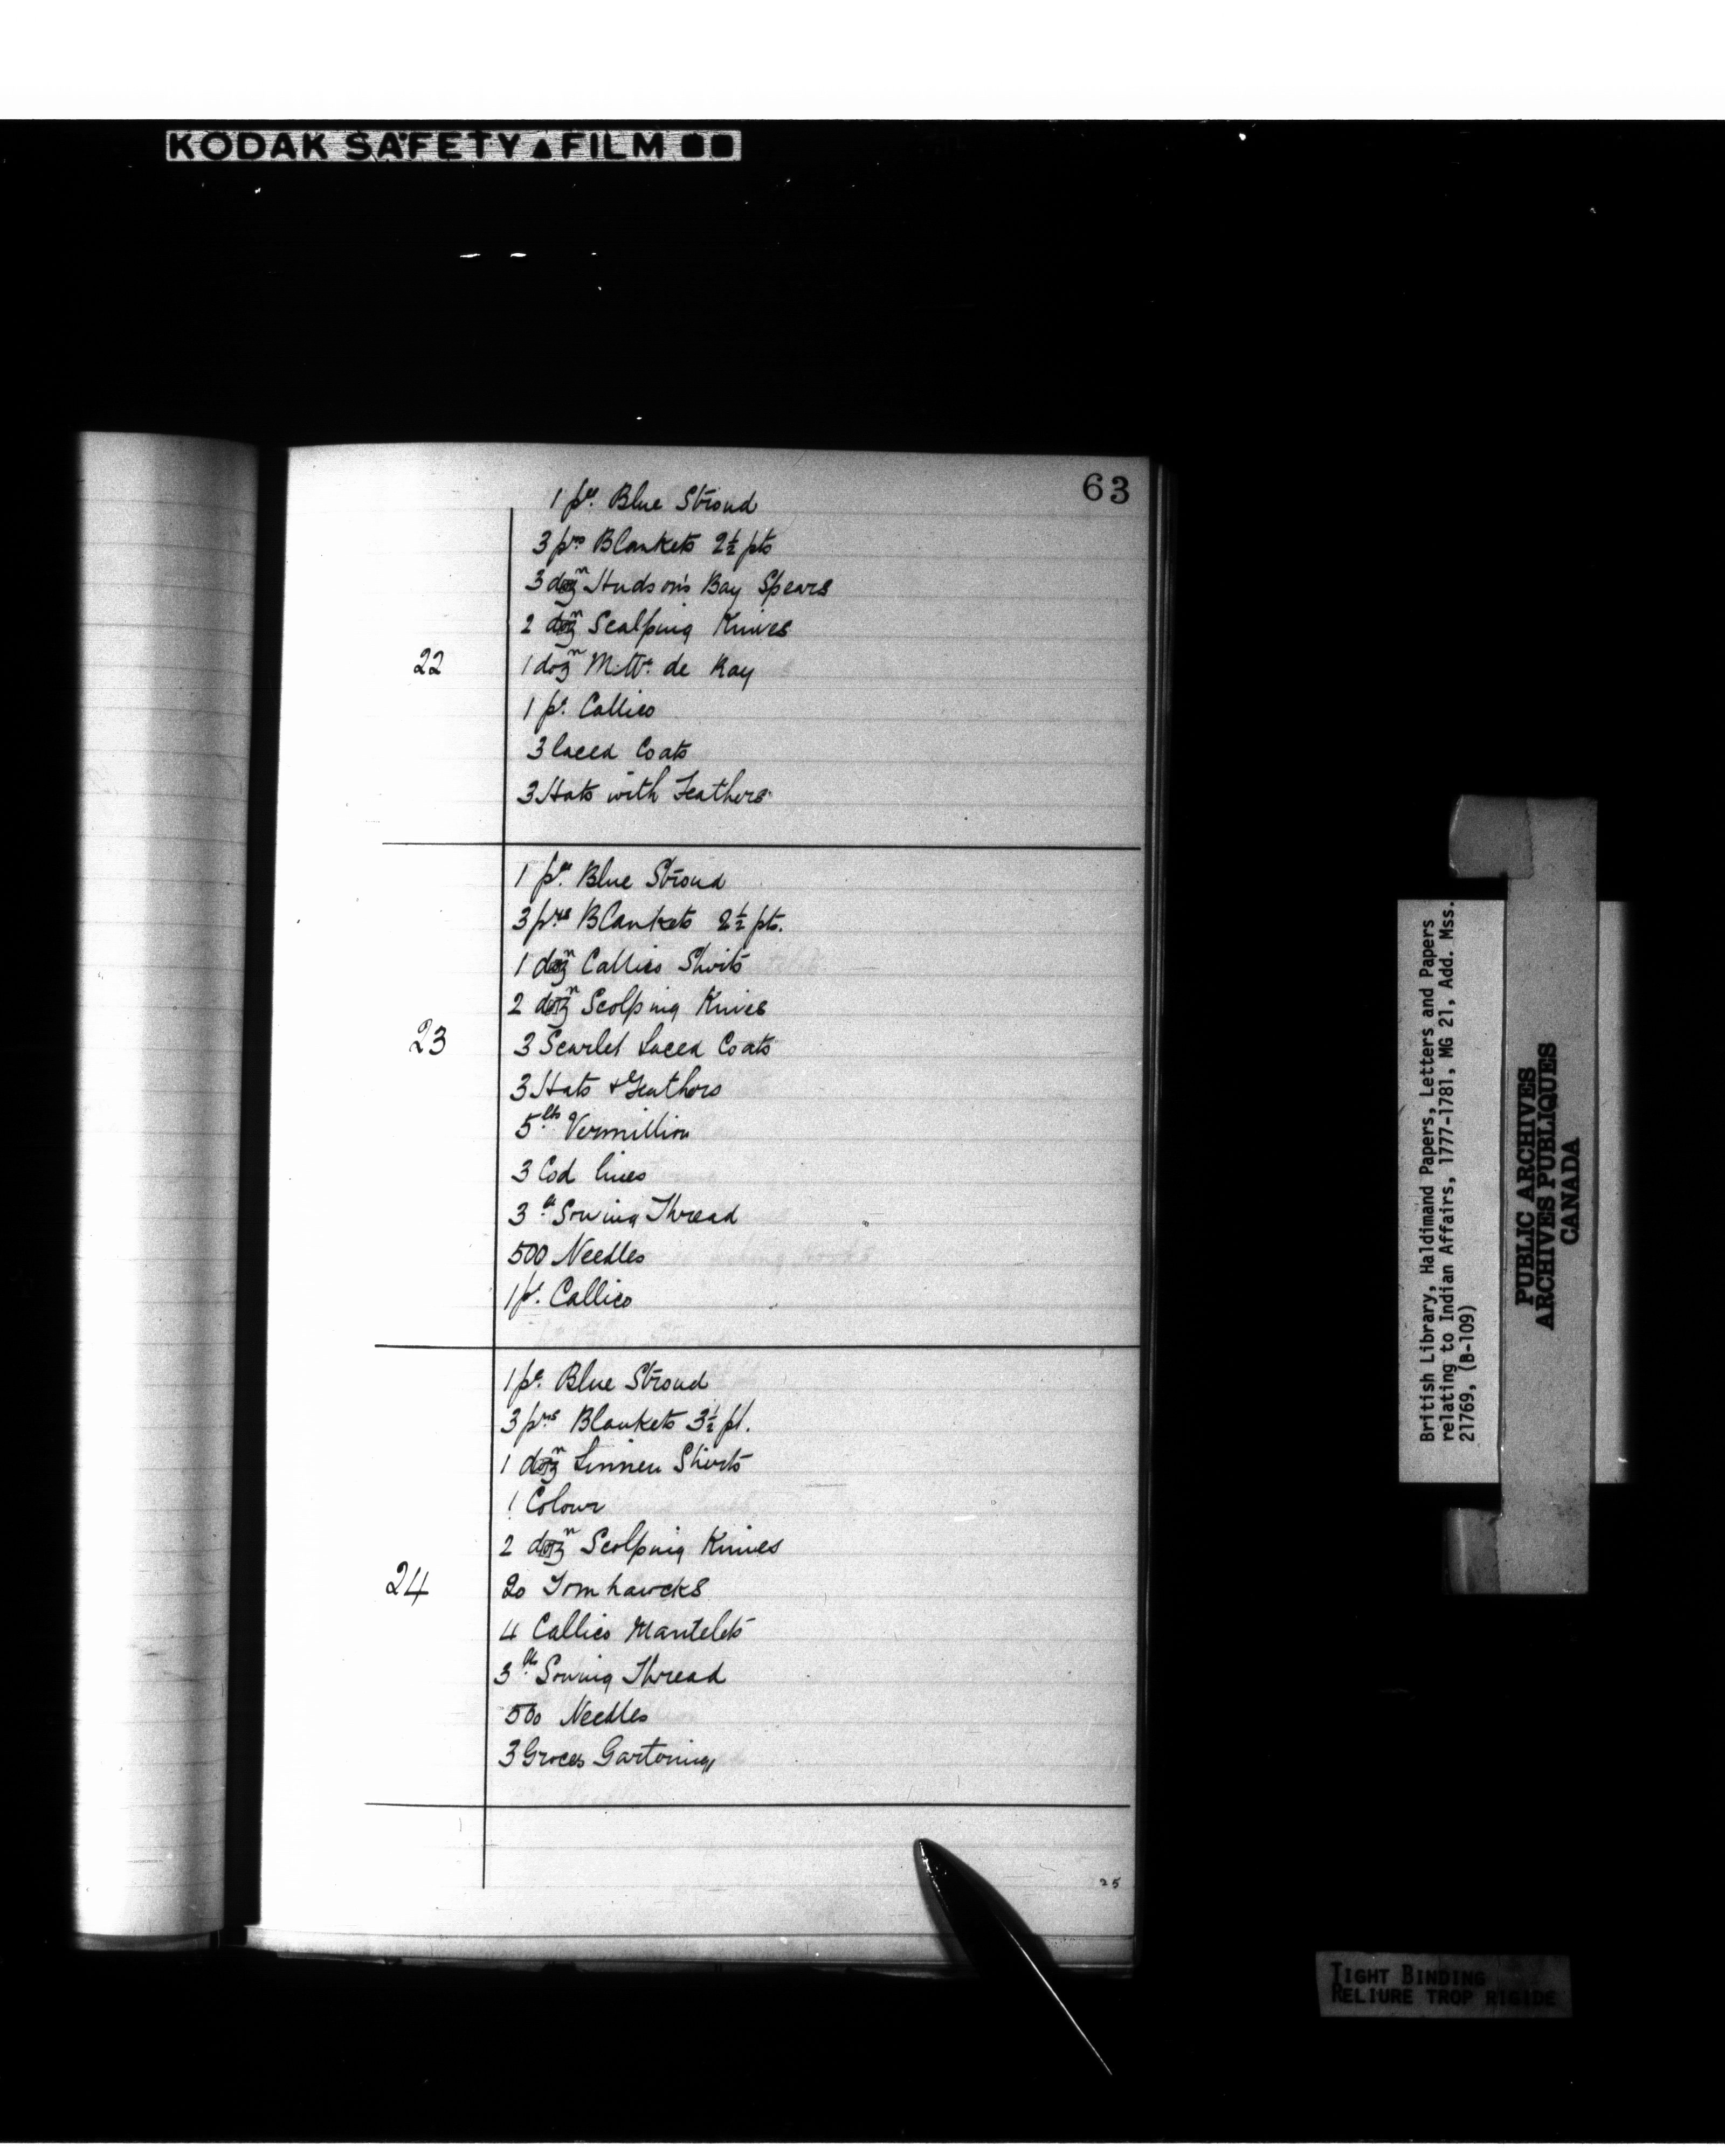 KODAK SAFETY ▲ FILM
63
1 pce. Blue Stroud
3 prs Blankets 2½ pts
3 dozn Hudson's Bay Spears
2 dozn Scalping Knives
22
1 dozn de Ray
1 pc. Callico
3 laced Coats
3 Hats with Feathers
1 pce. Blue Stroud
3 prs Blankets 2½ pts.
1 dozn Callico Shirts
2 dozn Scolping Knives
23
3 Scarlet Laced Coats
3 Hats & Feathers
5 lbs Vermillion
3 Cod lines
3 lb Sowing Thread
500 Needles
1 pc. Callico
1 pce. Blue Stroud
3 prs Blankets 3½ pt.
1 dozn Linnen Shirts
1 Colour
2 dozn Scolping Knives
24
20 Tomhawcks
4 Callico Mantelets
3 lbs Sowing Thread
500 Needles
3 Groces Gartering
25
British Library, Haldimand Papers, Letters and Papers
relating to Indian Affairs, 1777-1781, MG 21, Add. Mss.
21769, (B-109)
PUBLIC ARCHIVES
ARCHIVES PUBLIQUES
CANADA
TIGHT BINDING
RELIURE TROP RIGIDE